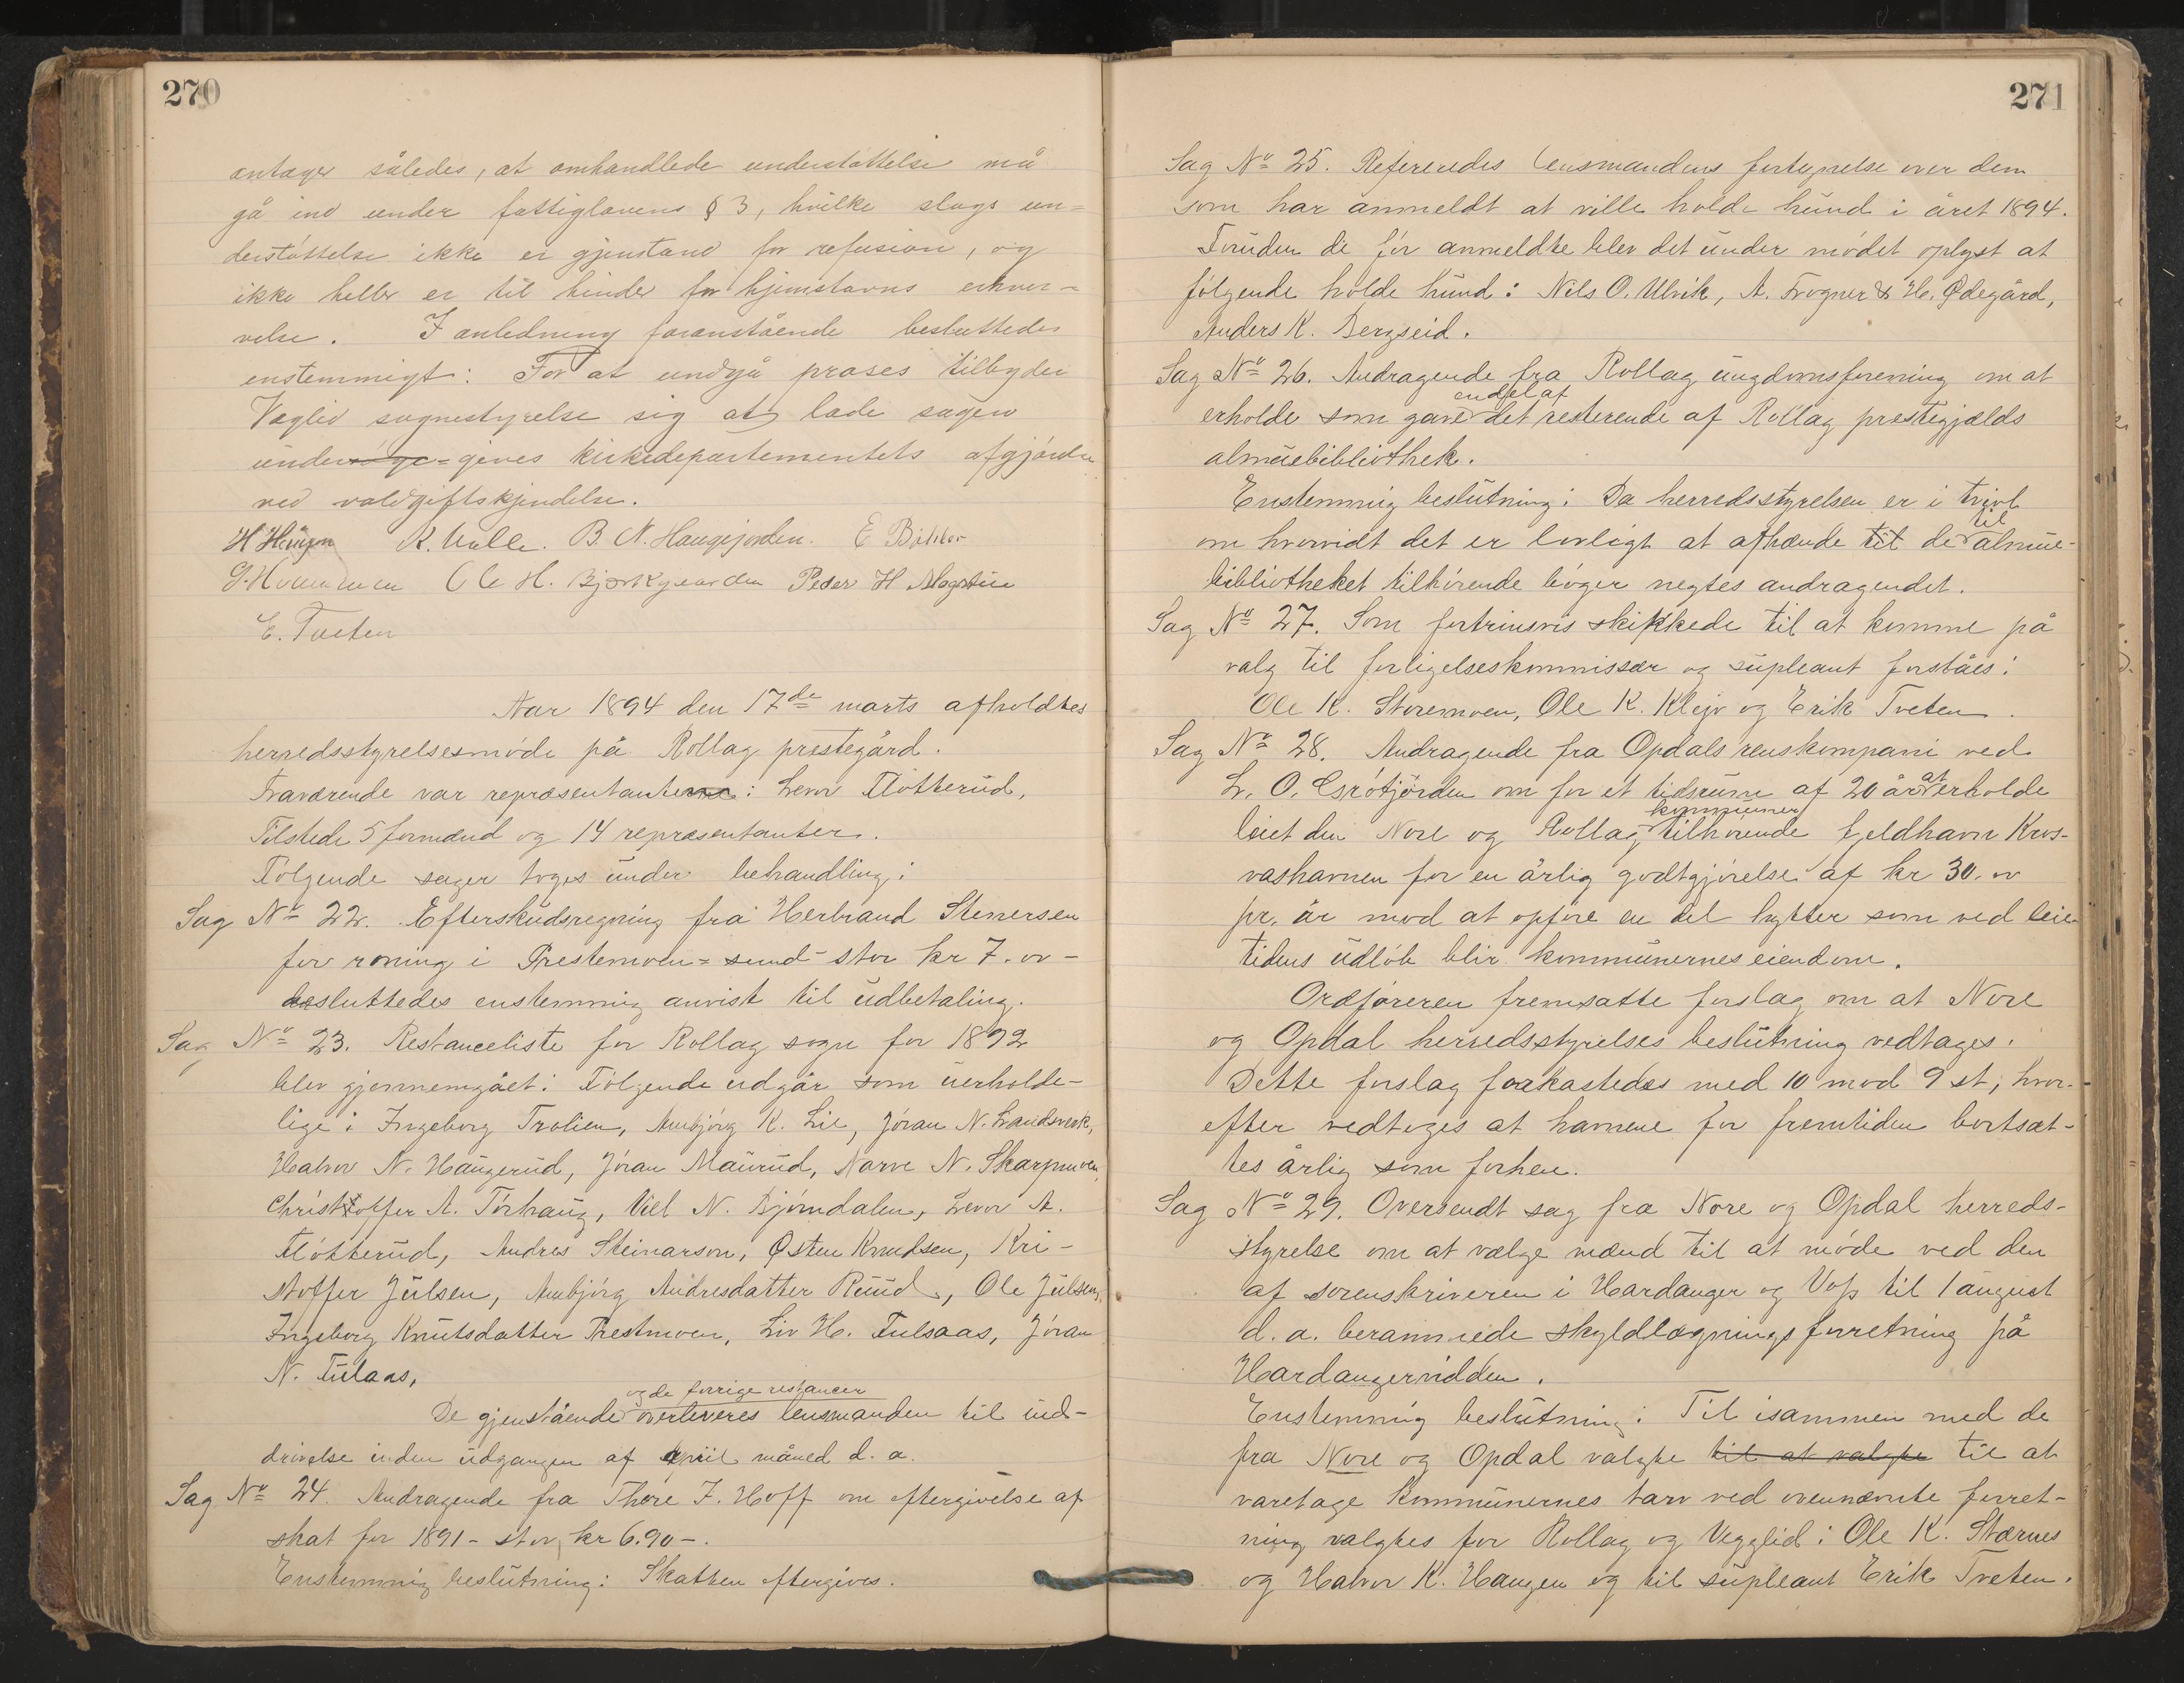 270
antager således, at omhandlede understøttelse må
gå ind under fattiglovens § 3, hvilke slags un=
derstøttelse ikke er gjenstand for refusion, og
ikke heller er til hinder for hjemstavns erhver-
velse. I anledning foranstående besluttedes
enstemmigt: For at undgå proses tilbyder
Veglid sognestyrelse sig at lade sagen
undersøge=gives kirkedepartementets afgjørelse
ved voldgiftskjendelse.
K. Ualle. B. N. Haugejorden. E Bakker
Ole H. Bjørkgaarden Peder H
E. Tveten
Aar 1894 den 17de marts afholdtes
herredsstyrelsesmøde på Rollag prestegård.
Fraværende var repræsentanterne: Levor Fløtterud,
Tilstede 5 formænd og 14 repræsentanter.
Følgende sager toges under behandling:
Sag No 22. Efterskudsregning fra Herbrand Stenersen
for roning i Prestemoen=sund- stor kr 7. or -
besluttedes enstemmig anvist til udbetaling.
Sag No 23. Restanceliste for Rollag sogn for 1892
blev gjennemgået: Følgende udgår som uerholde-
lige: Ingeborg Trolien, Ambjørg K. Lie, Jøran N. Landsverk,
Halvor N. Haugerud, Jøran Maurud, Narve N. Skarpmoen,
Christoffer A. Tørhaug, Viel N. Bjørndalen, Levor A.
Fløtterud, Andres Steinarson, Østen Knudsen, Kri-
stoffer Julsen, Ambjørg Andresdatter Ruud, Ole Julsen,
Ingeborg Knutsdatter Prestmoen, Liv H. Fulsaas, Jøran
N. Fulaas,
og de forrige restancer
De gjenstående overleveres lensmanden til ind-
drivelse inden udgangen af april måned d. a.
Sag No 24. Andragende fra Thore F. Hoff om eftergivelse af
skat for 1891 - stor kr 6.90 -.
Enstemmig beslutning: Skatten eftergives.
271
Sag No 25. Refereredes lensmandens fortegnelse over dem
som har anmeldt at ville holde hund i året 1894.
Foruden de før anmeldte blev det under mødet oplyst at
følgende holde hund: Nils O. Ulvik, A. Frogner & H. Ødegård,
Anders K. Bergseid.
Sag No 26. Andragende fra Rollag ungdomsforening om at
endel af
erholde som gave det resterende af Rollag prestegjælds
almuebibliothek.
Enstemmig beslutning: Da herredsstyrelsen er i tvivl
til
om hvorvidt det er lovligt at afhænde til de almue-
bibliotheket tilhørende bøger negtes andragendet.
Sag No 27. Som fortrinsvis skikkede til at komme på
valg til forligelseskommissær og supleant forståes:
Ole K. Storemoen, Ole K. Klejv og Erik Tveten.
Sag No 28. Andragende fra Opdals renskompani ved
L. O. Grøtjørden om for et tidsrum af 20 år at erholde
kommuner
leiet den Nore og Rollag tilhørende fjeldhavn Kros-
vashavnen for en årlig godtgjørelse af kr 30. or
pr. år mod at opføre en del hytter som ved leie
tidens udløb blir kommunernes eiendom.
Ordføreren fremsatte forslag om at Nore
og Opdal herredsstyrelses beslutning vedtages.
Dette forslag forkastedes med 10 mod 9 st, hvor-
efter vedtoges at havnene for fremtiden bortsæt-
tes årlig som forhen.
Sag No 29. Oversendt sag fra Nore og Opdal herreds-
styrelse om at vælge mænd til at møde ved den
af sorenskriveren i Hardanger og Voss til 1 august
d. a. berammede skyldlægningsforretning på
Hardangervidden.
Enstemmig beslutning: Til isammen med de
fra Nore og Opdal valgte til at valgte til at
varetage kommunernes tarv ved ovennævnte forret-
ning valgtes for Rollag og Vegglid: Ole K. Stærnes
og Halvor K. Haugen og til supleant Erik Tveten.